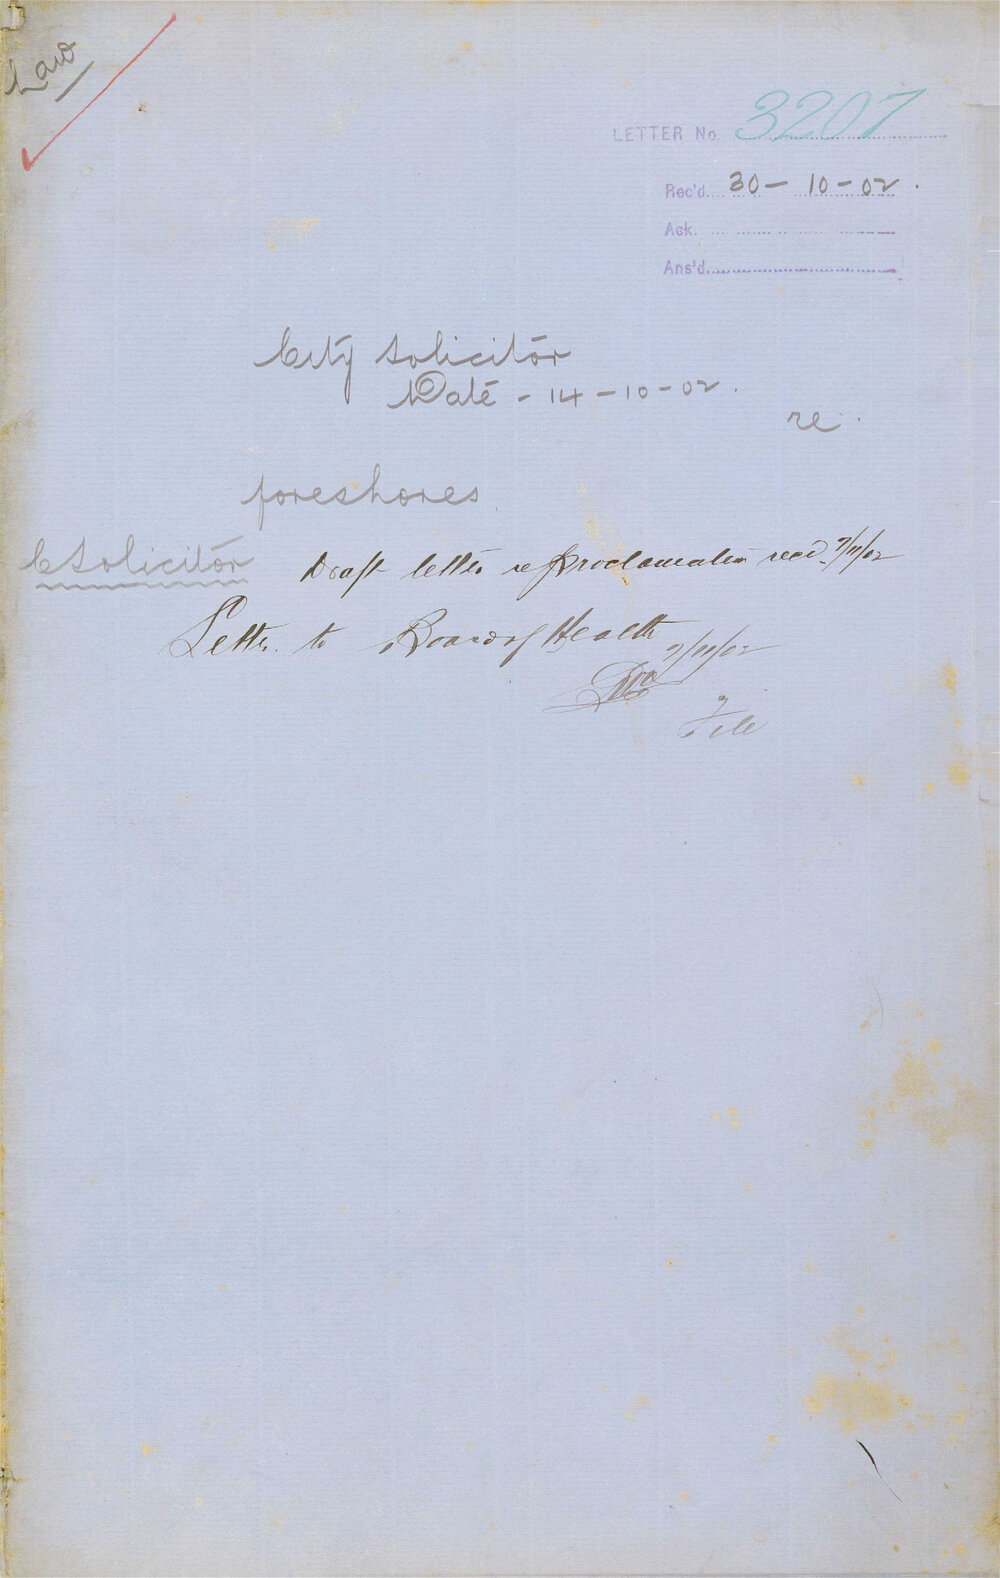 Law
LETTER No. 3207
Rec'd. 30-10-02.
Ack.
Ans'd.
City Solicitor
Date - 14-10-02.
re.
foreshores
C Solicitor
Draft letter re Proclamation recd. 7/11/02
Letter to Board of Health 7/11/02
File